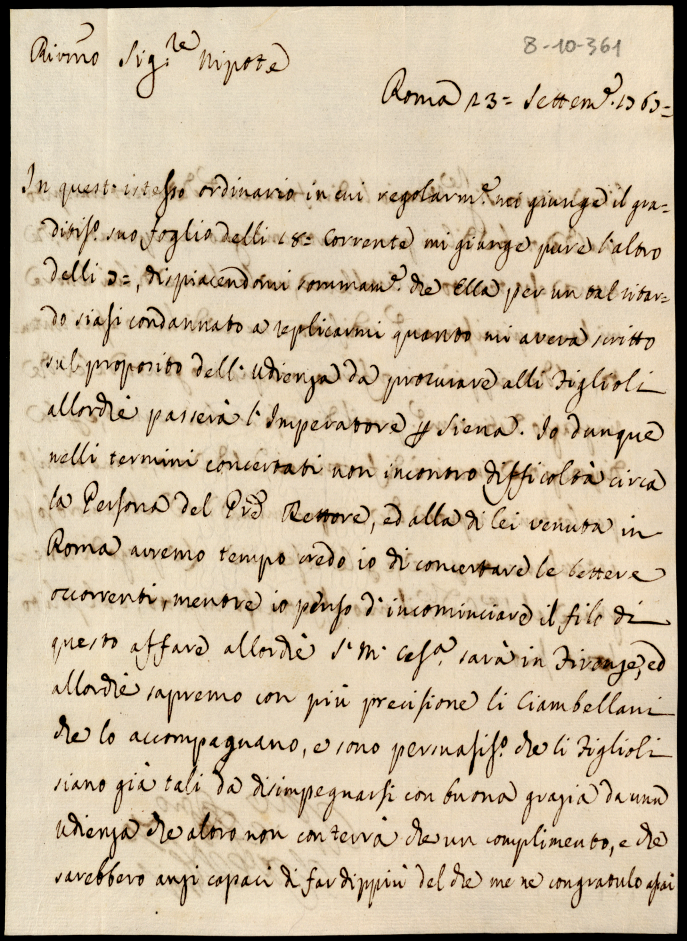 8-10-361
Rivmo Sig.re Nipote
Roma 23= Settem.e 1763=
In quest'istesso ordinario in cui regolarm.e mi giunge il gra-
ditis.o suo foglio delli 18= corrente mi giunge pure l'altro
delli 3=, dispiacendomi sommam.e che Ella per un tal ritar-
do siasi condannato a replicarmi quanto mi aveva scritto
sul proposito dell'Udienza da procurare alli Figlioli
allorchè passerà l'Imperatore p Siena. Io dunque
nelli termini concertati non incontro difficoltà circa
la Persona del Pre Rettore, ed alla di lei venuta in
Roma avremo tempo credo io di concertare le lettere
occorrenti, mentre io penso d'incominciare il filo di
questo affare allorchè S. M. Ces.a sarà in Firenze, ed
allorchè sapremo con più precisione li Ciambellani
che lo accompagnano, e sono persuasis.o che li Figlioli
siano già tali da disimpegnarsi con buona grazia da una
Udienza che altro non conterrà che un complimento, e che
sarebbero anzi capaci di far dippiù del che me ne congratulo assai